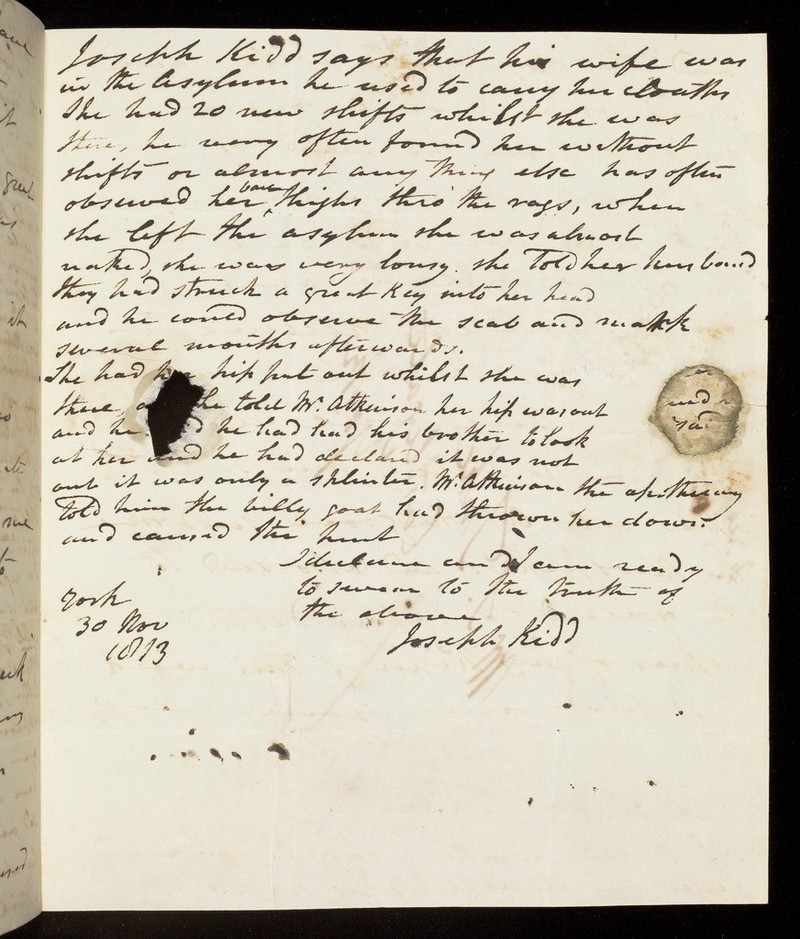 Joseph Kidd says that his wife was
in the Asylum he used to carry her cloaths
She had 20 new shifts whilst she was
there, he very often found her without
shifts or almost any thing else has often
observed her bare thighs thro' the rags, when
she left the asylum she was almost
naked, she was very lousy. she told her husband
they had struck a great Key into her head
and he could observe the scab and mark
several months afterwards.
She had her hip put out whilst she was
there, he told Mr. Atkinson her hip was out
and he he had had his brother to look
at her and he had declared it was not
out it was only a splinter. Mr. Atkinson the apothecary
told him the billy goat had thrown her down
and caused the hurt
I declare and I am ready
to swear to the truth of
the above
Joseph Kidd
York
30 Nov
1813